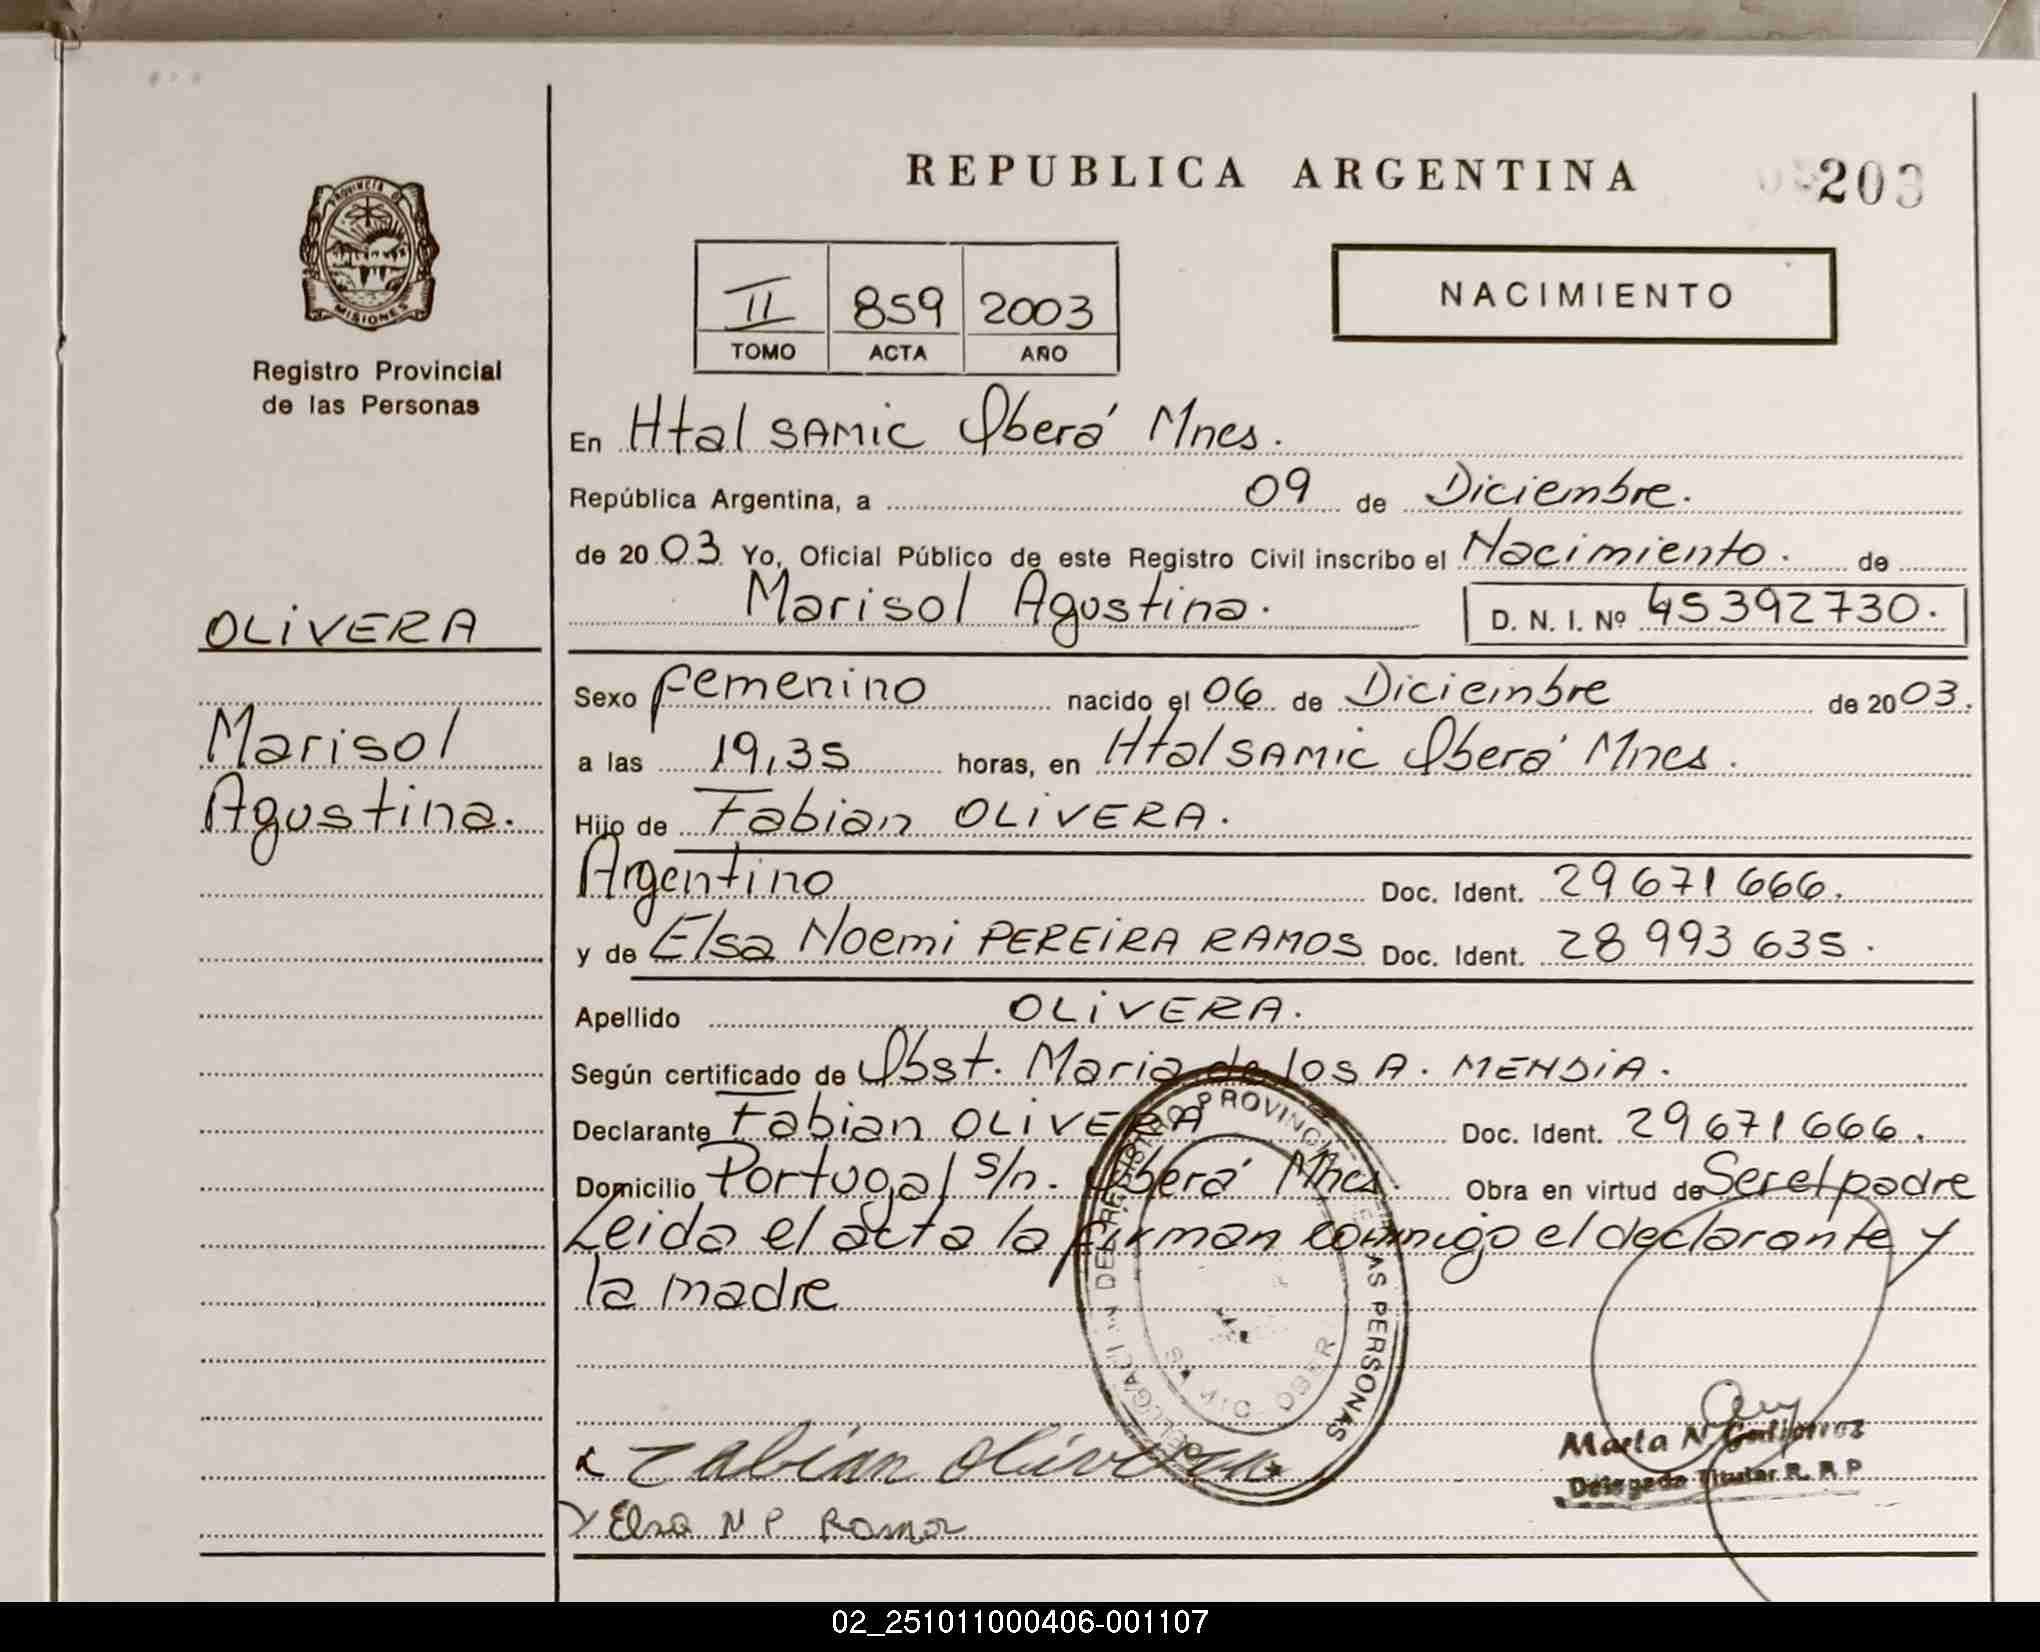 REPUBLICA ARGENTINA
203
PROVINCIA DE
MISIONES
Registro Provincial
de las Personas
II 859 2003
TOMO ACTA AÑO
NACIMIENTO
En Htal SAMIC Oberá Mnes.
República Argentina, a 09 de Diciembre.
de 20 03 Yo, Oficial Público de este Registro Civil inscribo el Nacimiento. de
Marisol Agustina. D. N. I. Nº 45392730.
OLIVERA
Marisol
Agustina.
Sexo femenino nacido el 06 de Diciembre de 20 03.
a las 19,35 horas, en Htal SAMIC Oberá Mnes.
Hijo de Fabian OLIVERA.
Argentino Doc. Ident. 29 671 666.
y de Elsa Noemi PEREIRA RAMOS Doc. Ident. 28 993 635.
Apellido OLIVERA.
Según certificado de Obst. Maria de los A. MENDIA.
Declarante Fabian OLIVERA Doc. Ident. 29 671 666.
Domicilio Portugal s/n. Oberá Mnes. Obra en virtud de Ser el padre
Leida el acta la firman conmigo el declarante y
la madre
REGISTRO PROVINCIAL DE LAS PERSONAS
Fabian Olivera
Elsa N P Ramos
Marta N Gutierrez
Delegada Titular R. R. P
02_251011000406-001107